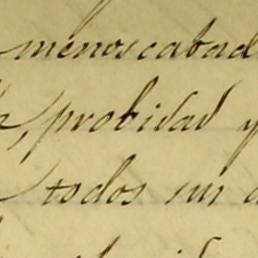 menoscabad
probidad y
todos sus